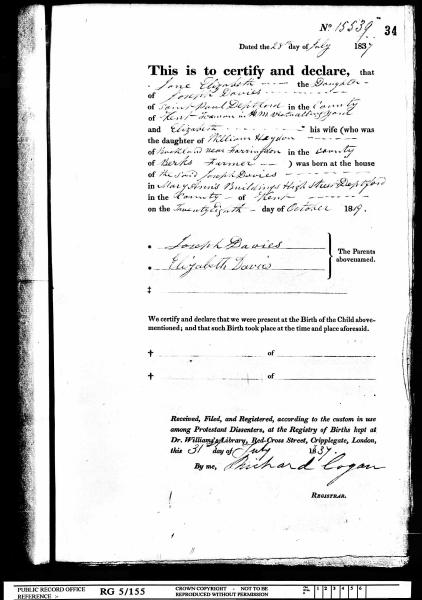 No 15539
34
Dated the 28 day of July 1837
This is to certify and declare, that
Jane Elizabeth the Daughter
of Joseph Davies
of Saint Paul Deptford in the County
of Kent in H M Victualling Yard
and Elizabeth his wife (who was
the daughter of William Haydon
of Buckland near Farringdon in the County
of Berks Farmer ) was born at the house
of the said Joseph Davies
in Mary Ann's Buildings High Street Deptford
in the County of Kent
on the Twenty eighth day of October 1819.
* Joseph Davies
The Parents
abovenamed.
* Elizabeth Davies
‡
We certify and declare that we were present at the Birth of the Child above-
mentioned; and that such Birth took place at the time and place aforesaid.
† of
† of
Received, Filed, and Registered, according to the custom in use
among Protestant Dissenters, at the Registry of Births kept at
Dr. Williams's Library, Red-Cross Street, Cripplegate, London,
this 31 day of July 1837.
By me, Richard Cogan
Registrar.
PUBLIC RECORD OFFICE
REFERENCE :-
RG 5/155
CROWN COPYRIGHT - NOT TO BE
REPRODUCED WITHOUT PERMISSION
1 2 3 4 5 6